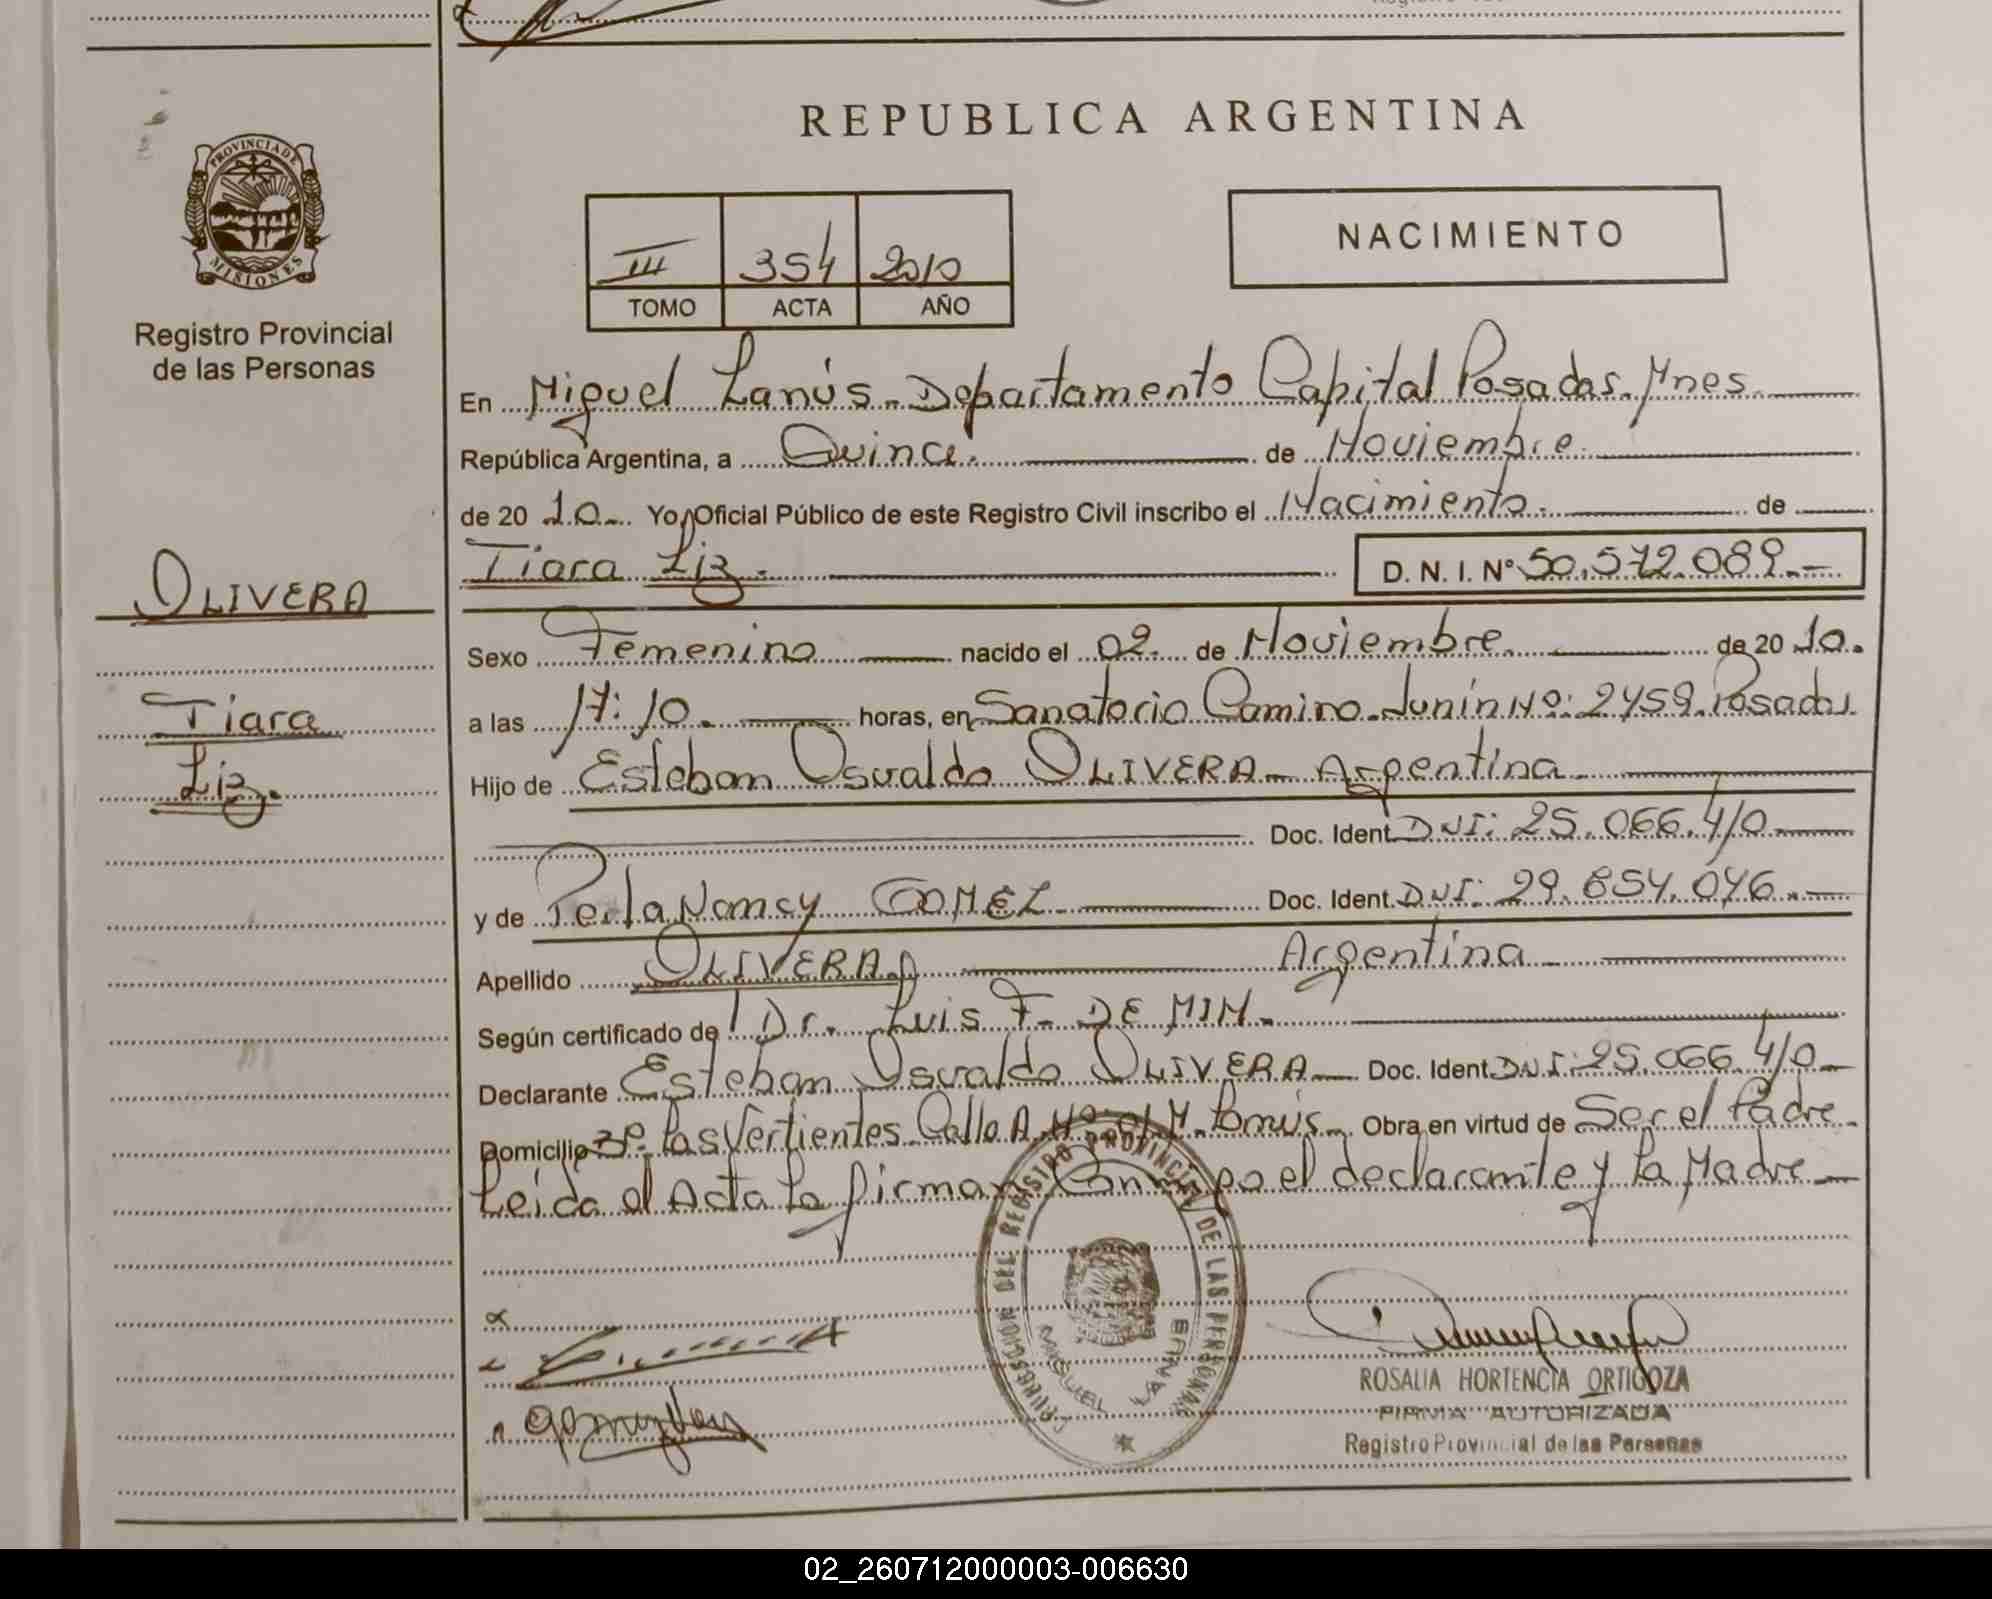 REPUBLICA ARGENTINA
PROVINCIA DE MISIONES
Registro Provincial
de las Personas
III 354 2010
TOMO ACTA AÑO
NACIMIENTO
En Miguel Lanús - Departamento Capital Posadas. Mnes.
República Argentina, a Quince. de Noviembre.
de 20 10. Yo, Oficial Público de este Registro Civil inscribo el Nacimiento. de
Tiara Liz. D. N. I. Nº 50.572.089.-
OLIVERA
Tiara
Liz.
Sexo Femenino nacido el 02. de Noviembre. de 20 10.
a las 17:10. horas, en Sanatorio Camino. Junín Nº: 2459. Posadas.
Hijo de Esteban Osvaldo OLIVERA - Argentina.
Doc. Ident. DNI: 25.066.410.
y de Perla Nancy GOMEZ. Doc. Ident. DNI: 29.854.046.
Apellido OLIVERA Argentina
Según certificado de Dr. Luis F. DE MIM.
Declarante Esteban Osvaldo OLIVERA Doc. Ident. DNI: 25.066.410
Domicilio Bº. Las Vertientes. Calle A. Nº M. Lanús. Obra en virtud de Ser el Padre.
Leída el Acta La firman Conmigo el declarante y La Madre
DEL REGISTRO PROVINCIAL DE LAS PERSONAS
MIGUEL LANUS
ROSALIA HORTENCIA ORTIGOZA
FIRMA AUTORIZADA
Registro Provincial de las Personas
02_260712000003-006630